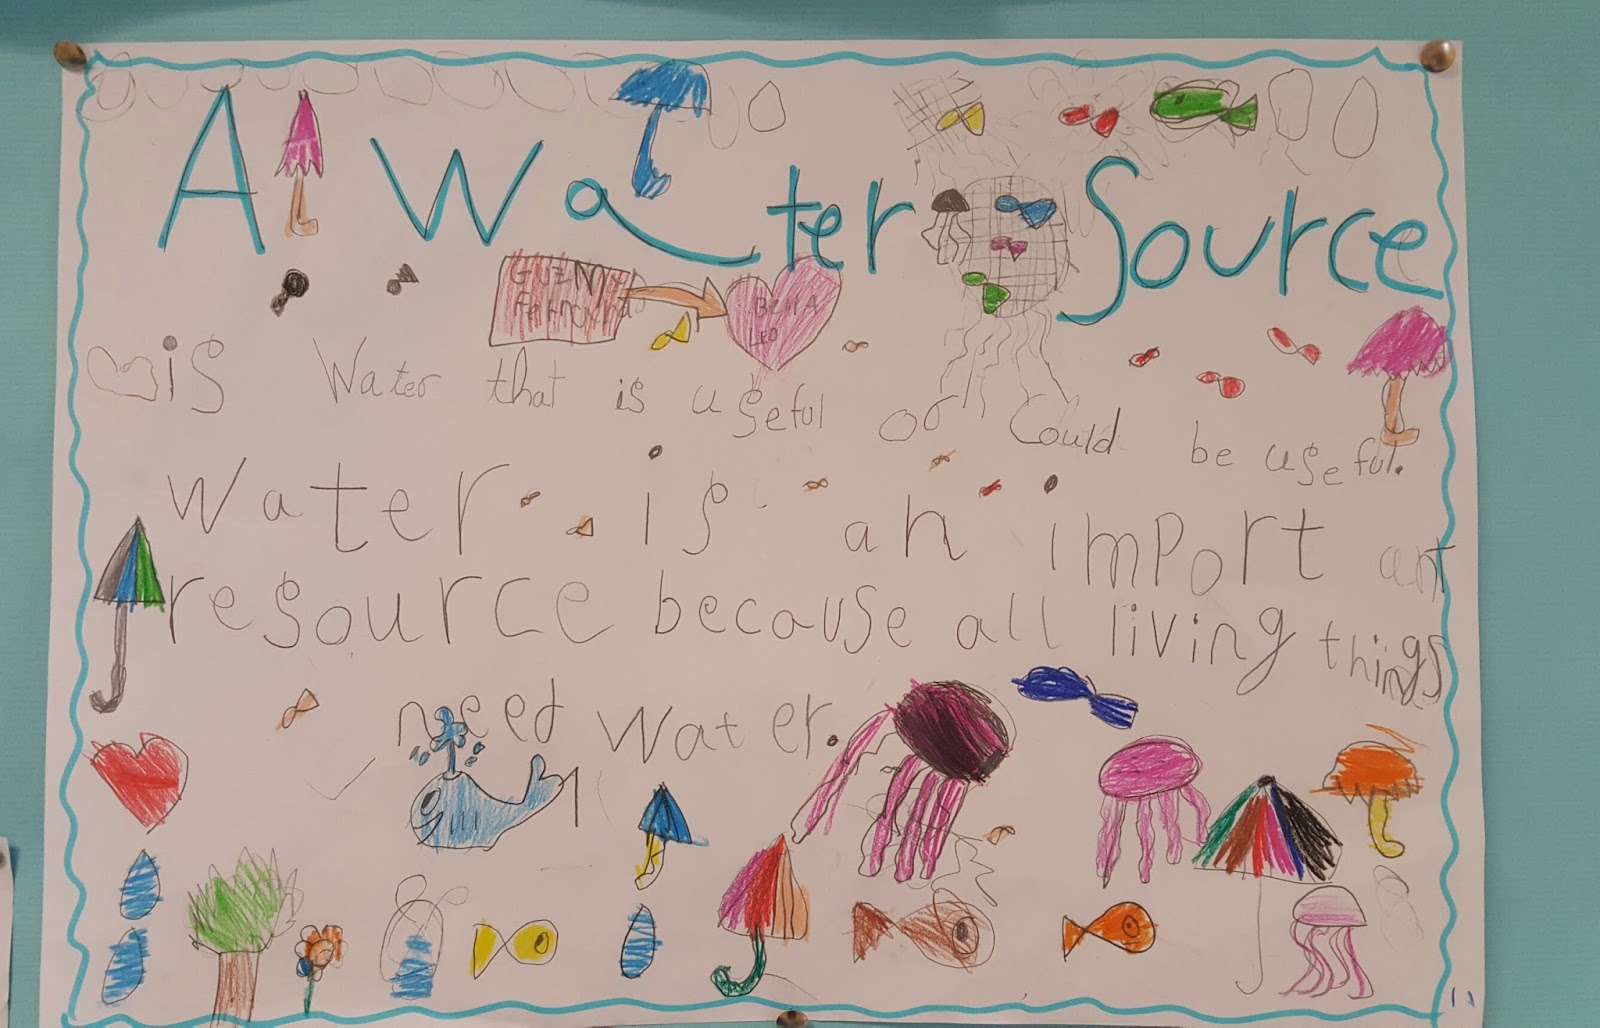 A Water Source
GUZMAN BEMA
Fernanda LEO
is Water that is useful or Could be useful.
Water is an important
resource because all living things
need water.